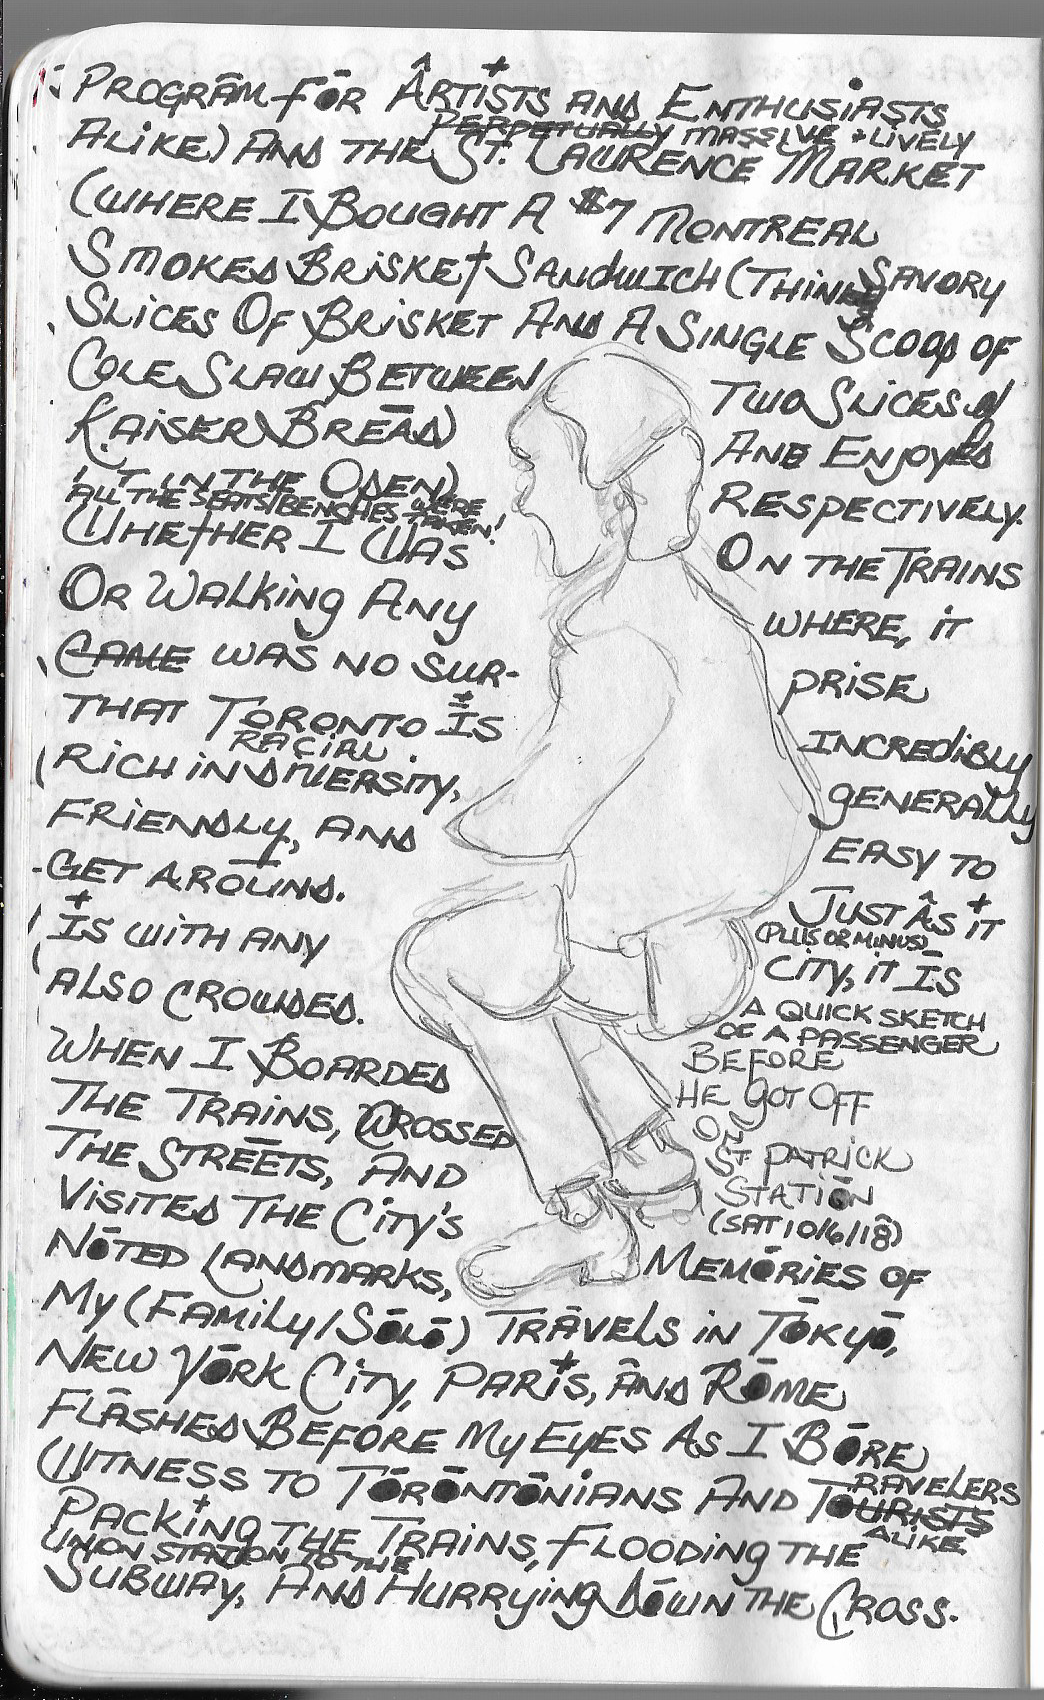 PROGRAM FOR ARTISTS AND ENTHUSIASTS
PERPETUALLY MASSIVE + LIVELY
ALIKE) AND THE ST. LAWRENCE MARKET
(WHERE I BOUGHT A $7 MONTREAL
SMOKED BRISKET SANDWICH (THIN SAVORY
SLICES OF BRISKET AND A SINGLE SCOOP OF
COLE SLAW BETWEEN TWO SLICES OF
KAISER BREAD) AND ENJOYED
IT IN THE OPEN) RESPECTIVELY.
ALL THE SEATS/BENCHES WERE TAKEN!
WHETHER I WAS ON THE TRAINS
OR WALKING ANY WHERE, IT
CAME WAS NO SUR- PRISE
THAT TORONTO IS INCREDIBLY
RACIAL
RICH IN DIVERSITY, GENERALLY
FRIENDLY, AND EASY TO
GET AROUND. JUST AS IT
(PLUS OR MINUS)
IS WITH ANY CITY, IT IS
ALSO CROWDED.
A QUICK SKETCH
OF A PASSENGER
BEFORE
HE GOT OFF
ON
ST. PATRICK
STATION
(SAT 10/6/18)
WHEN I BOARDED
THE TRAINS, CROSSED
THE STREETS, AND
VISITED THE CITY'S
NOTED LANDMARKS, MEMORIES OF
MY (FAMILY/SOLO) TRAVELS IN TOKYO,
NEW YORK CITY, PARIS, AND ROME
FLASHED BEFORE MY EYES AS I BORE
WITNESS TO TORONTONIANS AND TOURISTS TRAVELERS
ALIKE
PACKING THE TRAINS, FLOODING THE
UNION STATION TO THE
SUBWAY, AND HURRYING DOWN THE CROSS-